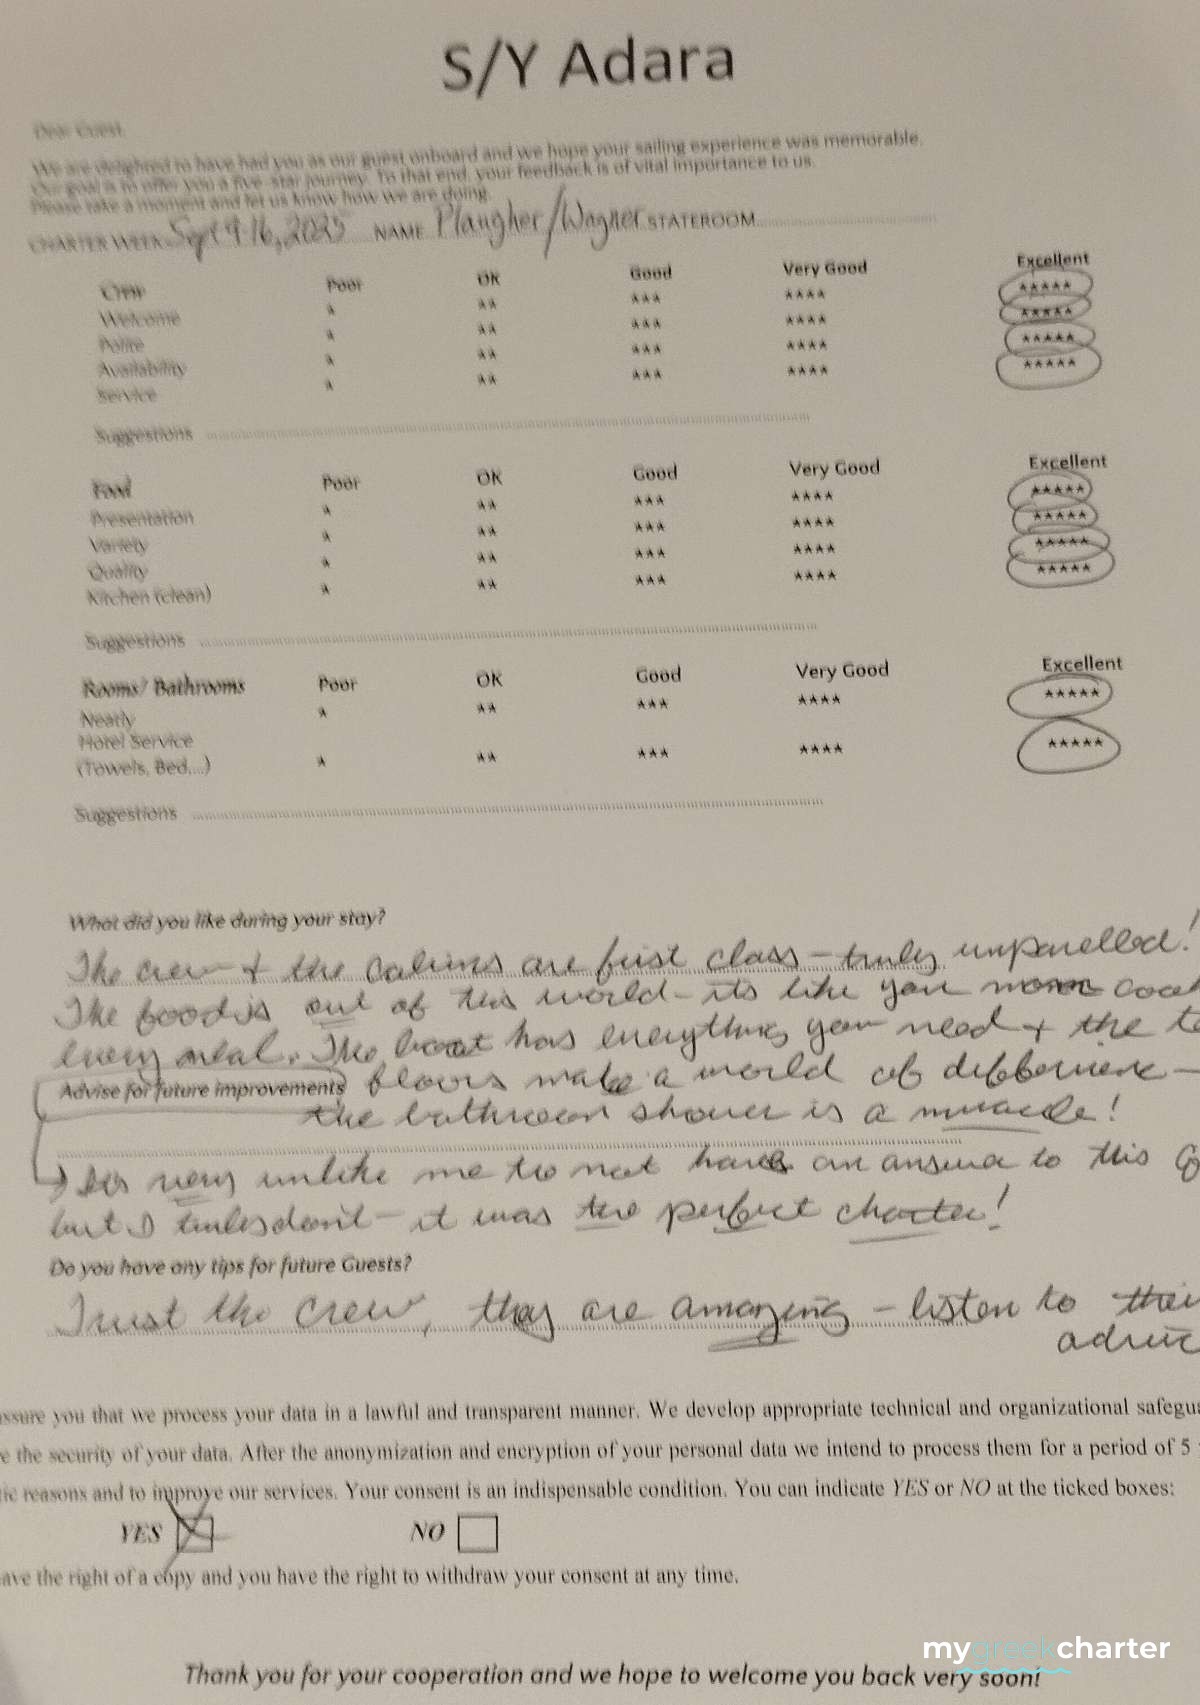 S/Y Adara
Dear Guest,
We are delighted to have had you as our guest onboard and we hope your sailing experience was memorable.
Our goal is to offer you a five-star journey. To that end, your feedback is of vital importance to us.
Please take a moment and let us know how we are doing.
CHARTER WEEK Sept 9-16, 2025 NAME Plaugher/Wagner STATEROOM
Crew Poor OK Good Very Good Excellent
Welcome * ** *** **** *****
Polite * ** *** **** *****
Availability * ** *** **** *****
Service * ** *** **** *****
Suggestions
Food Poor OK Good Very Good Excellent
Presentation * ** *** **** *****
Variety * ** *** **** *****
Quality * ** *** **** *****
Kitchen (clean) * ** *** **** *****
Suggestions
Rooms/ Bathrooms Poor OK Good Very Good Excellent
Neatly * ** *** **** *****
Hotel Service
(Towels, Bed,...) * ** *** **** *****
Suggestions
What did you like during your stay?
The crew + the cabins are first class - truly unparelled!
The food is out of this world - its like your mom
every meal. The boat has everything you need + the
Advise for future improvements floors make a world of difference -
the bathroom shower is a miracle!
very unlike me to not have an answer to this
but I don't - it was the perfect charter!
Do you have any tips for future Guests?
Trust the crew, they are amazing - listen to their
assure you that we process your data in a lawful and transparent manner. We develop appropriate technical and organizational
the security of your data. After the anonymization and encryption of your personal data we intend to process them for a period of 5
reasons and to improve our services. Your consent is an indispensable condition. You can indicate YES or NO at the ticked boxes:
YES NO
have the right of a copy and you have the right to withdraw your consent at any time.
mygreekcharter
Thank you for your cooperation and we hope to welcome you back very soon!